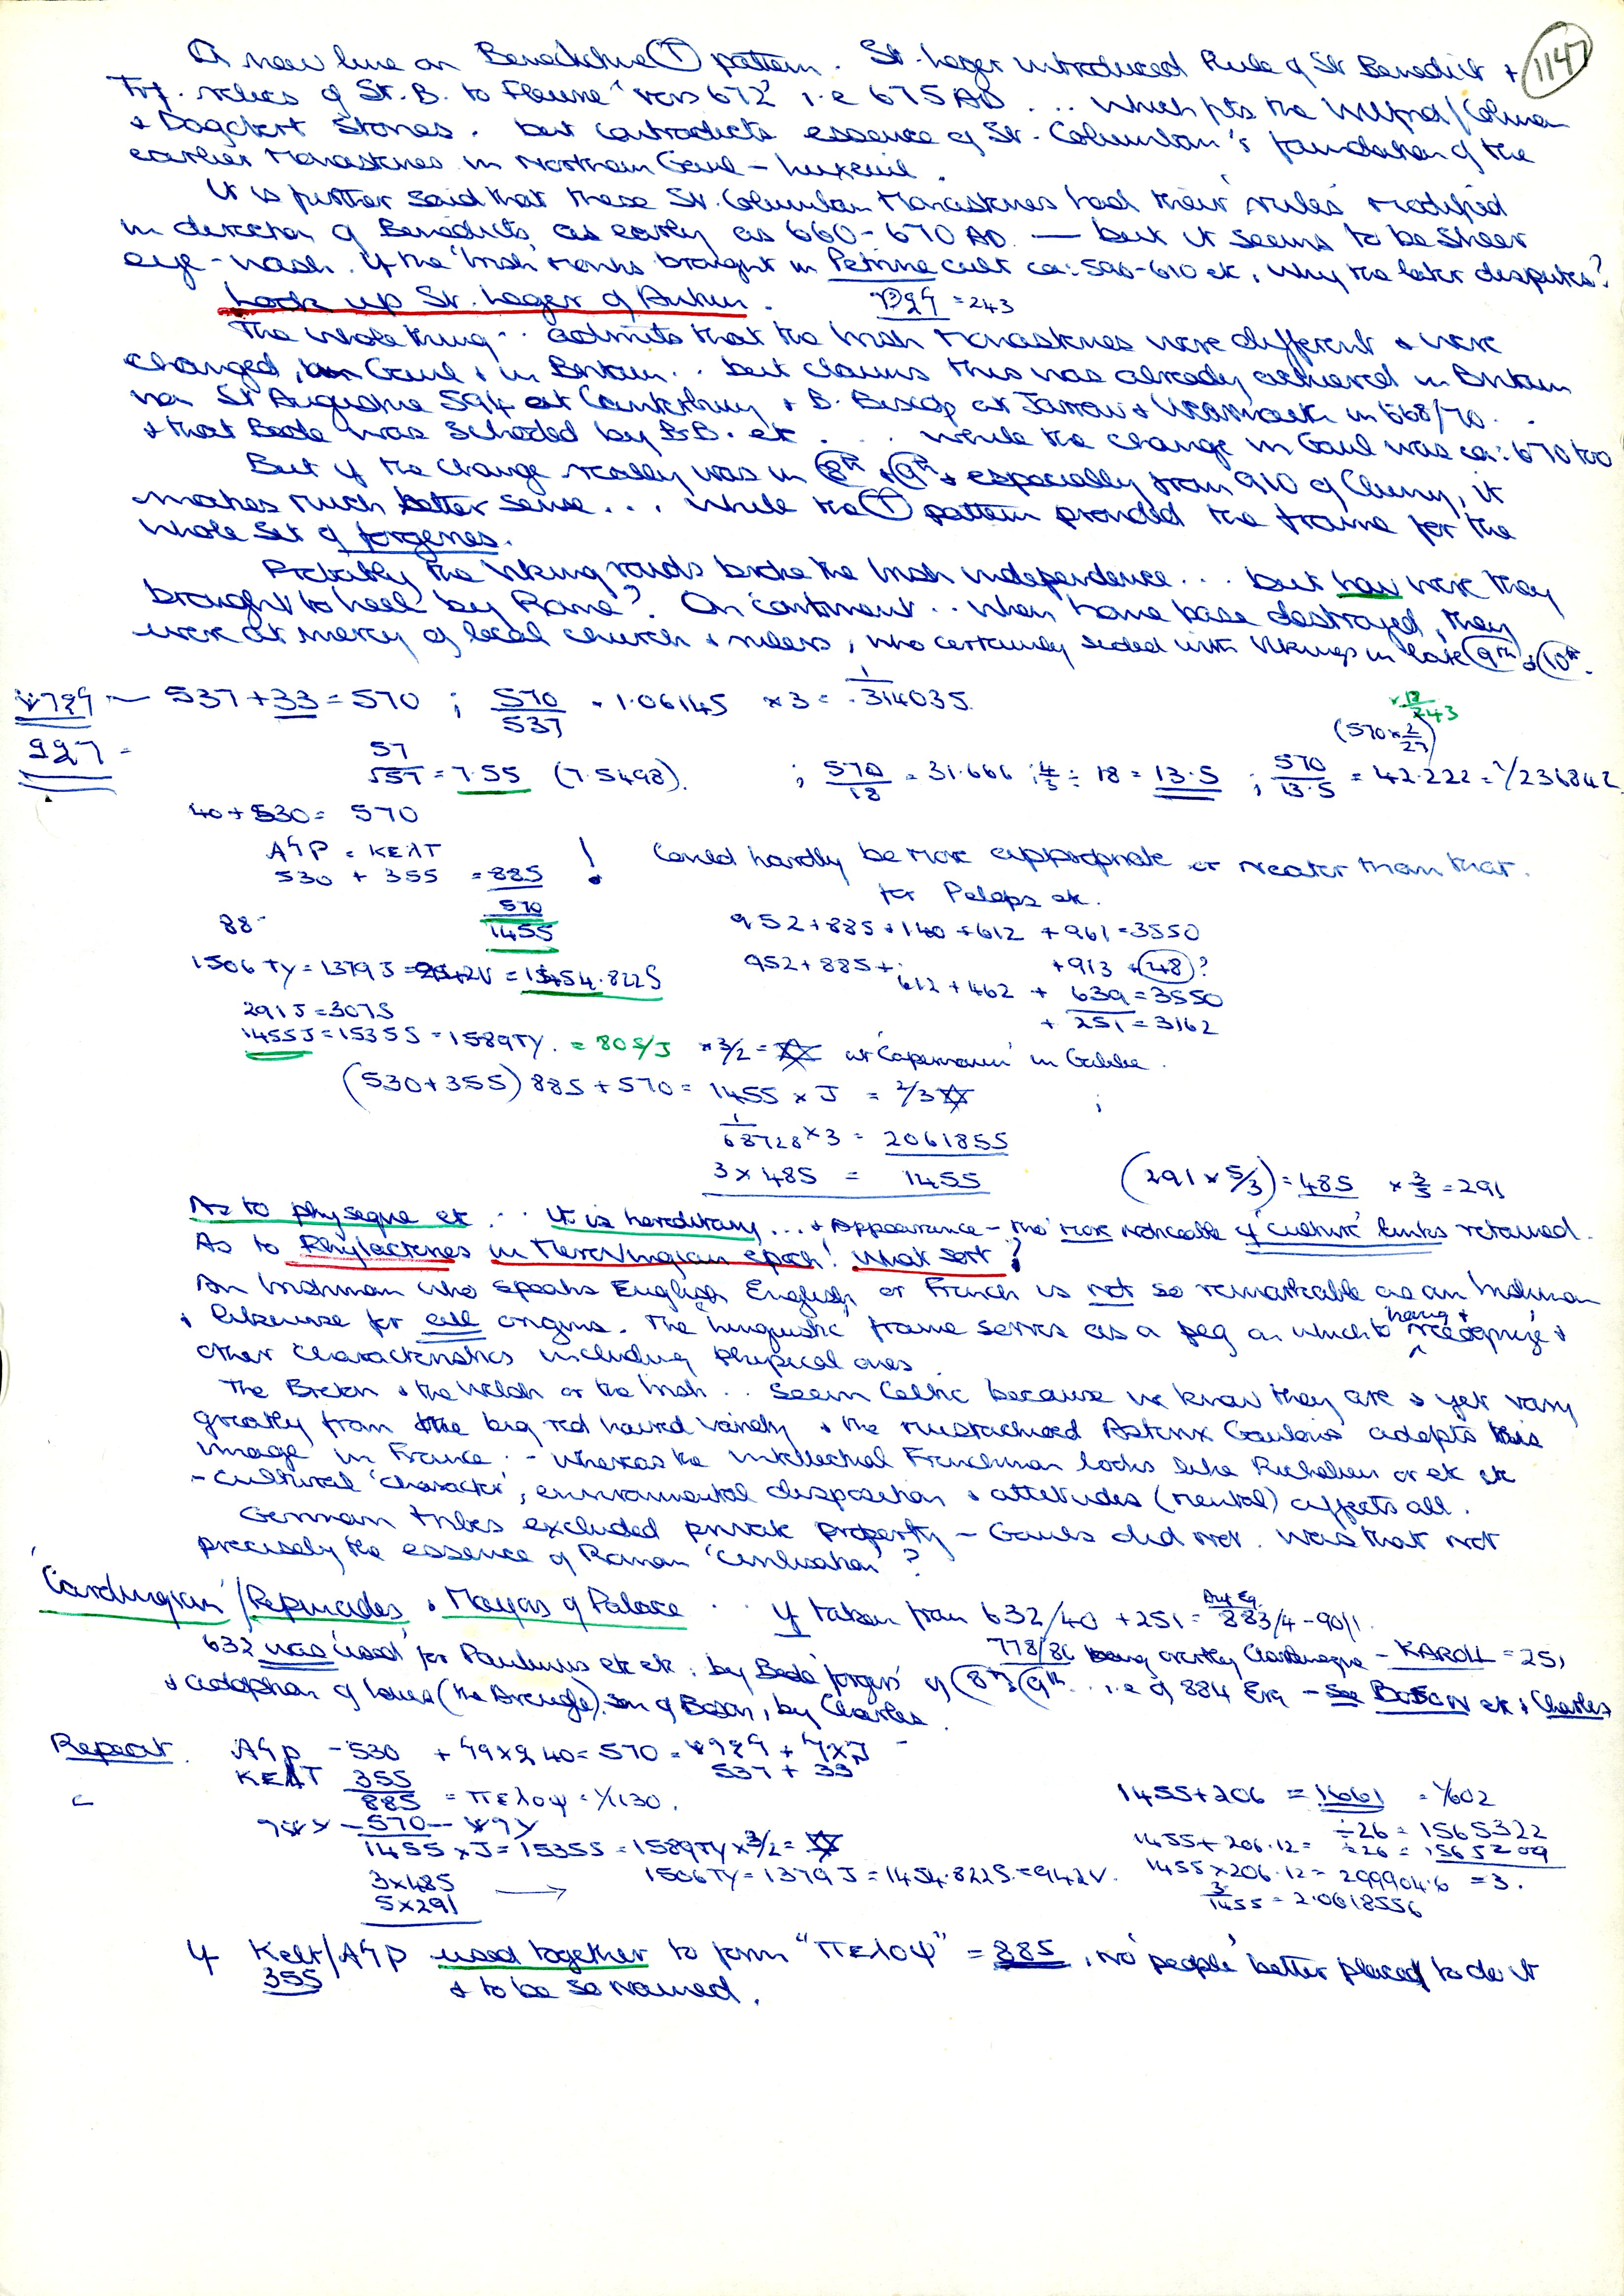 1147
A new line on Benedictine (T) pattern. St. Leger introduced Rule of St Benedict +
Trf. relics of St. B. to Fleurie 'vers 672' i.e 675 AD ... Which fits the Wilfrid/Colman
+ Dagobert stories. but contradicts essence of St. Columban's foundation of the
earlier Monasteries in Northern Gaul – Luxeuil.
It is further said that these St. Columban Monasteries had their rules modified
in direction of Benedicts, as early as 660-670 AD. — but it seems to be sheer
eye-wash. If the Irish monks brought in Petrine cult ca: 590-610 etc, Why the later disputes?
Look up St. Leger of Autun. = 243
The whole thing .. admits that the Irish Monasteries were different & were
changed, Gaul & in Britain .. but claims this was already achieved in Britain
via St Augustine 594 at Canterbury & B. Biscop at Jarrow & Wearmouth in 668/70 ..
& that Bede was schooled by B.B. etc ... while the change in Gaul was ca: 670 too
But if the change really was in 8th & 9th & especially from 910 of Cluny, it
makes much better sense ... while the (T) pattern provided the frame for the
whole set of forgeries.
Probably the Viking raids broke the Irish independence ... but how were they
brought to heel by Rome? On continent .. when home base destroyed, they
were at mercy of local church & rulers, who certainly sided with Vikings in late 9th & 10th.
537 + 33 = 570 ; 570/537 = 1.06145 × 3 = 1/.314035
× 18/243
(570 × 2/27)
57
√57 = 7.55 (7.5498). ; 570/18 = 31.666 ; 4/3 ÷ 18 = 13.5 ; 570/13.5 = 42.222 = 1/236842
40 + 530 = 570
= KEΛT
530 + 355 = 885 ! Could hardly be more appropriate or neater than that.
for Pelops etc.
570
88 1455 952 + 885 + 140 + 612 + 961 = 3550
1506 TY = 1379 J = = 1454.822 S 952 + 885 + +913 +(48)?
612 + 462 + 639 = 3550
291 J = 307 S + 251 = 3162
1455 J = 1535 S = 1589 TY. = 80 S/J × 3/2 = ✡ at 'Capernaum' in Galilee.
(530 + 355) 885 + 570 = 1455 × J = 2/3 ✡ ;
1/68728 × 3 = 2061855
3 × 485 = 1455 (291 × 5/3) = 485 × 3/5 = 291
As to physeque etc .. It is hereditary ... & Appearance – the more noticeable if 'culture' links retained.
As to Phylacteries in Merovingian epoch! What sort?
An Irishman who speaks English English, or French is not so remarkable as an Irishman
& likewise for all origins. The 'linguistic' frame serves as a peg on which to hang & recognize &
other characteristics including physical ones.
The Breton & the Welsh or the Irish .. seem Celtic because we know they are & yet vary
greatly from the big red haired variety & the mustachioed Asterix Gaulois adopts this
image in France .. – whereas the intellectual Frenchman looks like Richelieu or etc etc
– cultural 'character', environmental disposition & attitudes (mental) affects all.
German tribes excluded private property – Gauls did not. Was that not
precisely the essence of Roman 'Civilisation'?
'Carolingian'/Pepinades & Mayors of Palace .. If taken from 632/40 + 251 = 883/4 – 901/1.
632 was 'used' for Paulinus etc etc. by Bede 'forgers' of 8th & 9th .. i.e of 884 Era – see BOSON etc & Charles
778/86 being exactly Charlemagne – KAROLL = 251
& adoption of Louis (the Aveugle) son of Boson, by Charles.
Repeat. – 530 + 40 = 570 = +
KEΛT 355 537 + 33
885 = πελοψ = 1/1130. 1455 + 206 = 1661 = 1/602
– 570 – ÷26 = 1565322
1455 × J = 1535 S = 1589 TY × 3/2 = ✡ 1455 + 206.12 = ÷26 = 1565209
3 × 485 1506 TY = 1379 J = 1454.822 S = 942 V. 1455 × 206.12 = 299904.6 = 3.
5 × 291 3/1455 = 2.0618556
If Kelt/ used together to form "πελοψ" = 885, no 'people' better placed to do it
355 & to be so named.